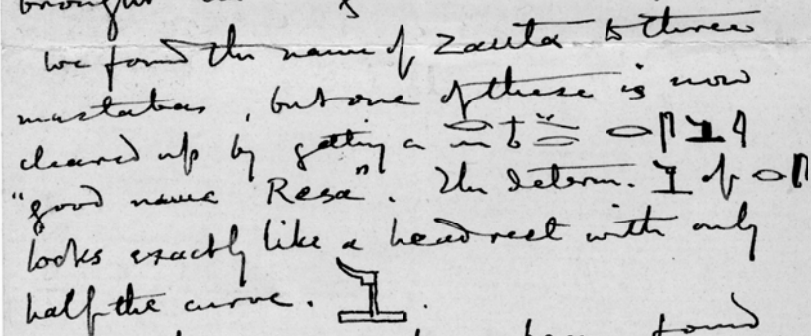 brought
we found the name of Zauta in three
mastabas, but one of these is now
cleared up by getting a
"good name Resa". The determ. of
looks exactly like a headrest with only
half the curve.
found